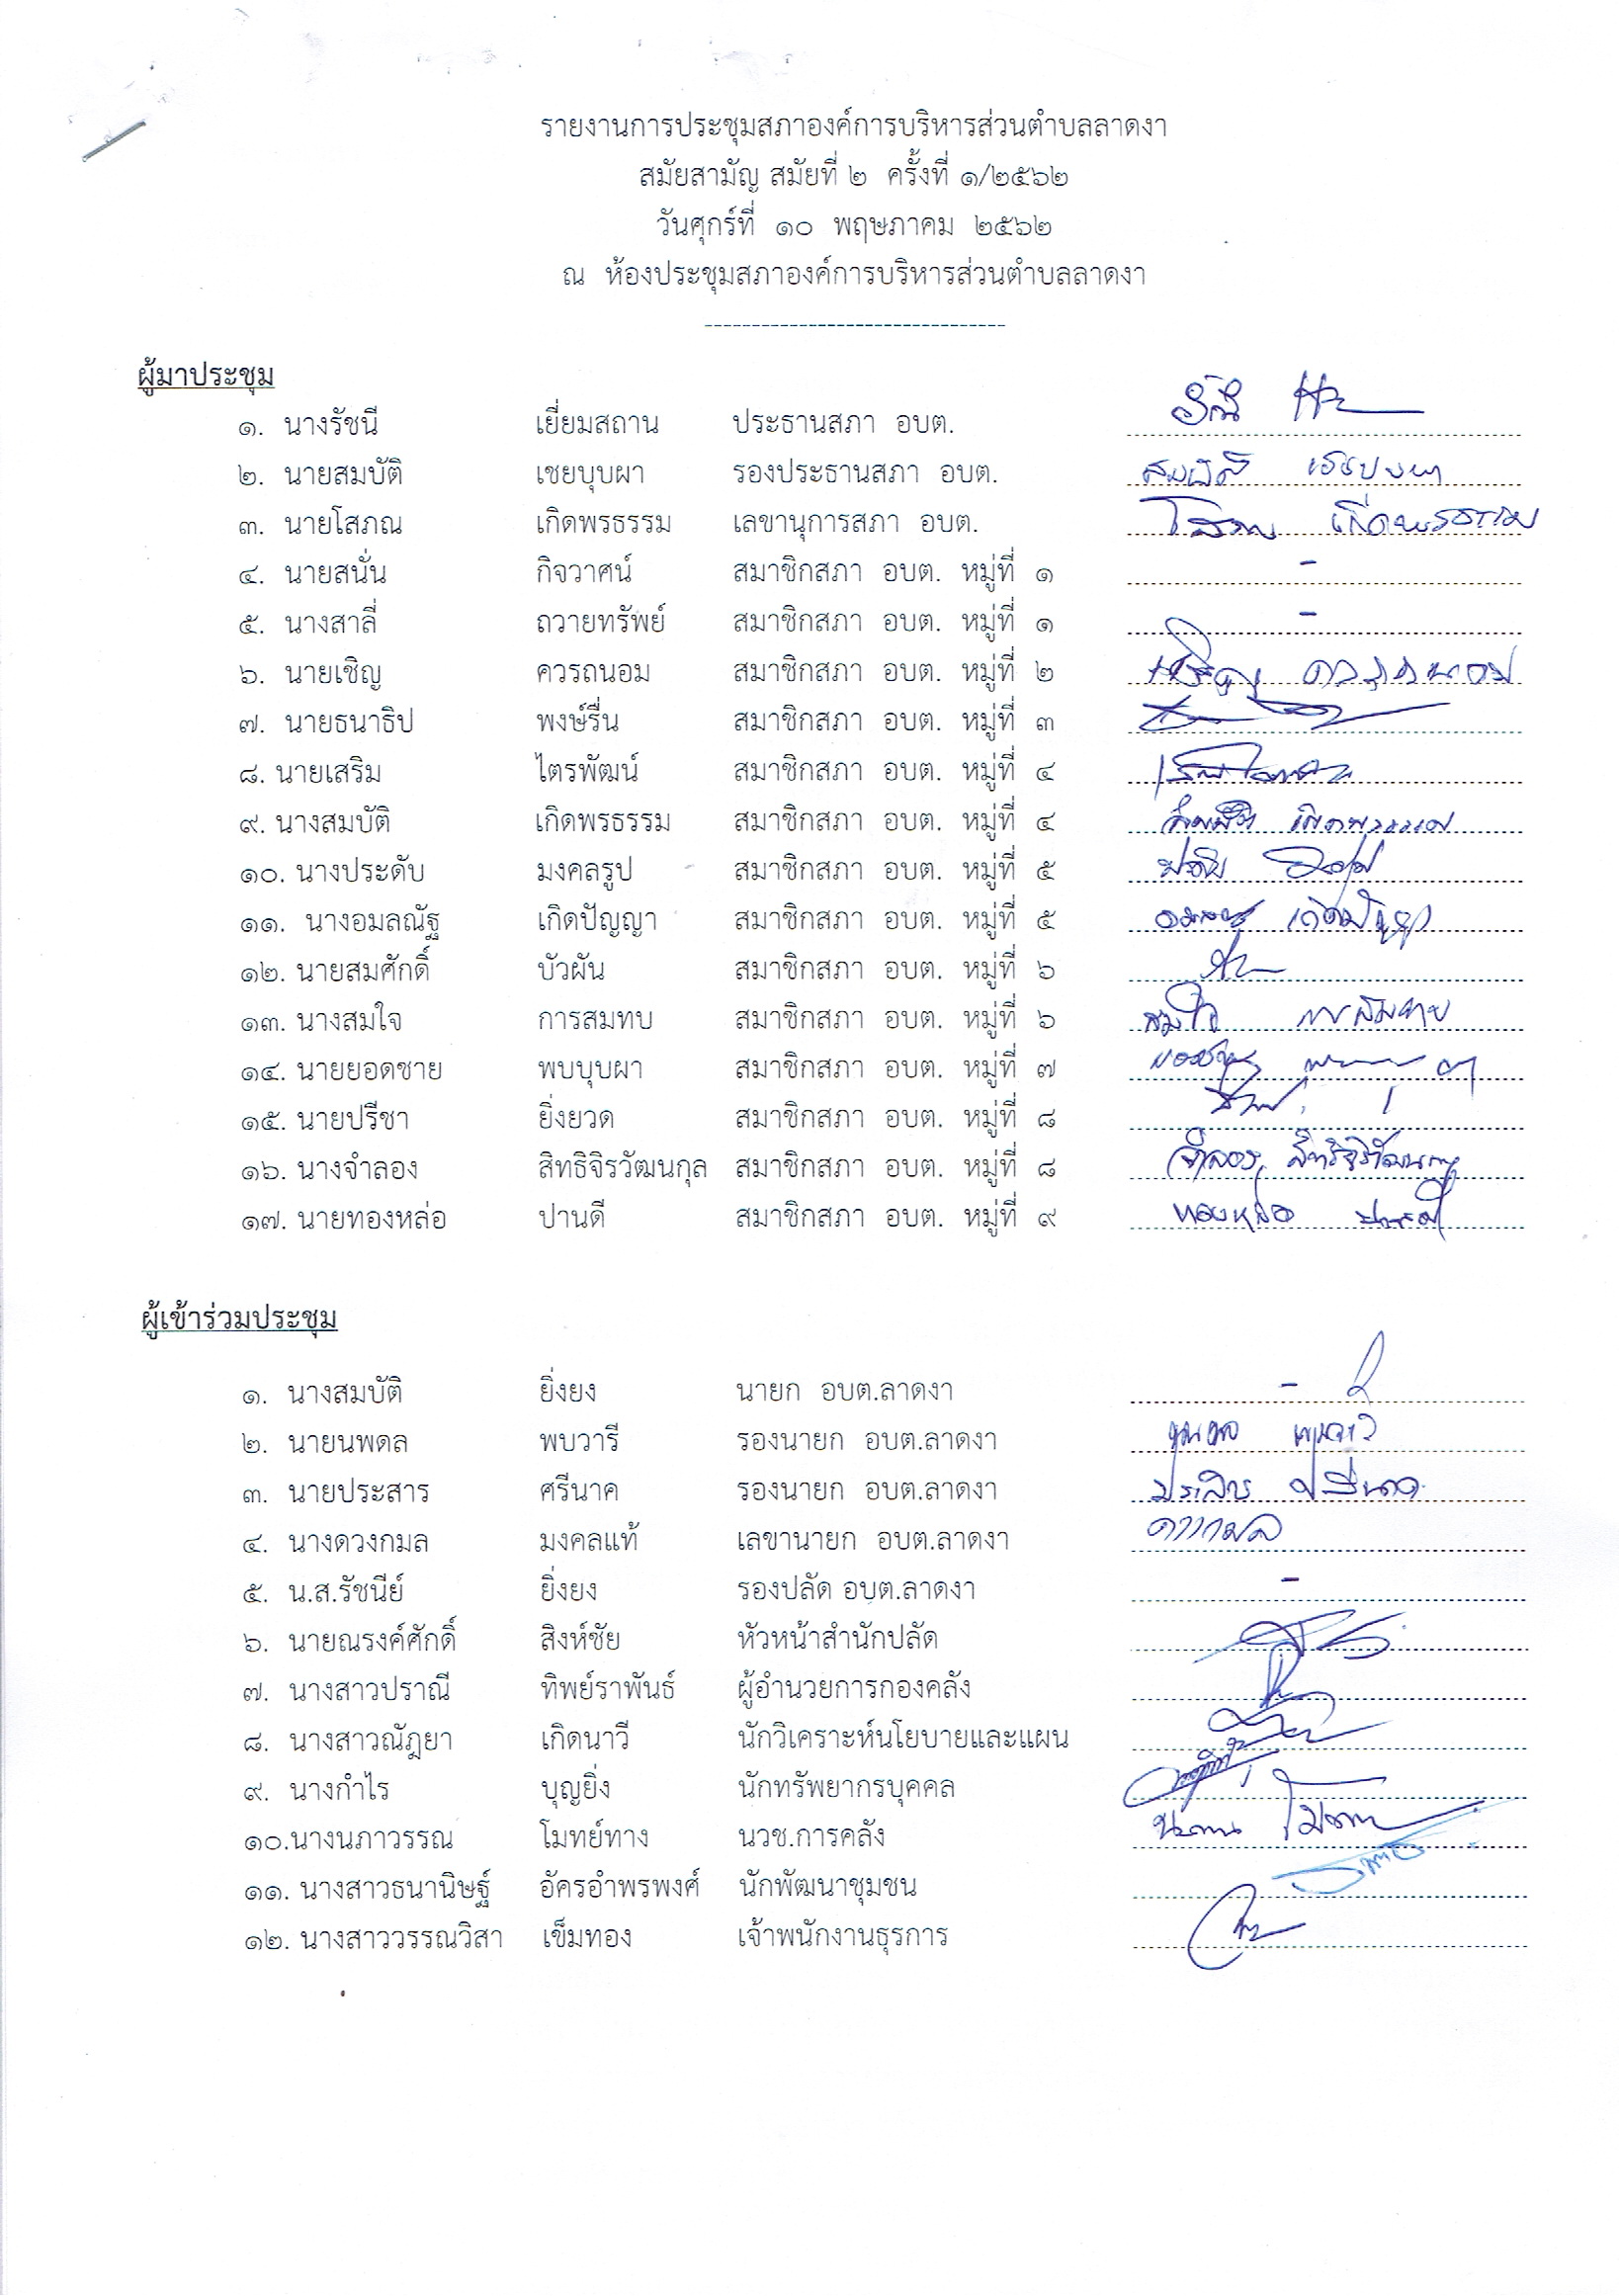 รายงานการประชุมสภาองค์การบริหารส่วนตำบลลาดงา
สมัยสามัญ สมัยที่ ๒ ครั้งที่ ๑/๒๕๖๒
วันศุกร์ที่ ๑๐ พฤษภาคม ๒๕๖๒
ณ ห้องประชุมสภาองค์การบริหารส่วนตำบลลาดงา
--------------------------------
ผู้มาประชุม
๑. นางรัชนี เยี่ยมสถาน ประธานสภา อบต.
๒. นายสมบัติ เชยบุบผา รองประธานสภา อบต. สมบัติ เชยบุบผา
๓. นายโสภณ เกิดพรธรรม เลขานุการสภา อบต. โสภณ เกิดพรธรรม
๔. นายสนั่น กิจวาศน์ สมาชิกสภา อบต. หมู่ที่ ๑ -
๕. นางสาลี่ ถวายทรัพย์ สมาชิกสภา อบต. หมู่ที่ ๑ -
๖. นายเชิญ ควรถนอม สมาชิกสภา อบต. หมู่ที่ ๒ เชิญ ควรถนอม
๗. นายธนาธิป พงษ์รื่น สมาชิกสภา อบต. หมู่ที่ ๓
๘. นายเสริม ไตรพัฒน์ สมาชิกสภา อบต. หมู่ที่ ๔
๙. นางสมบัติ เกิดพรธรรม สมาชิกสภา อบต. หมู่ที่ ๔ สมบัติ เกิดพรธรรม
๑๐. นางประดับ มงคลรูป สมาชิกสภา อบต. หมู่ที่ ๕
๑๑. นางอมลณัฐ เกิดปัญญา สมาชิกสภา อบต. หมู่ที่ ๕ อมลณัฐ เกิดปัญญา
๑๒. นายสมศักดิ์ บัวผัน สมาชิกสภา อบต. หมู่ที่ ๖
๑๓. นางสมใจ การสมทบ สมาชิกสภา อบต. หมู่ที่ ๖ สมใจ การสมทบ
๑๔. นายยอดชาย พบบุบผา สมาชิกสภา อบต. หมู่ที่ ๗
๑๕. นายปรีชา ยิ่งยวด สมาชิกสภา อบต. หมู่ที่ ๘
๑๖. นางจำลอง สิทธิจิรวัฒนกุล สมาชิกสภา อบต. หมู่ที่ ๘ จำลอง สิทธิจิรวัฒนกุล
๑๗. นายทองหล่อ ปานดี สมาชิกสภา อบต. หมู่ที่ ๙ ทองหล่อ ปานดี
ผู้เข้าร่วมประชุม
๑. นางสมบัติ ยิ่งยง นายก อบต.ลาดงา -
๒. นายนพดล พบวารี รองนายก อบต.ลาดงา นพดล พบวารี
๓. นายประสาร ศรีนาค รองนายก อบต.ลาดงา ประสาร ศรีนาค
๔. นางดวงกมล มงคลแท้ เลขานายก อบต.ลาดงา ดวงกมล
๕. น.ส.รัชนีย์ ยิ่งยง รองปลัด อบต.ลาดงา -
๖. นายณรงค์ศักดิ์ สิงห์ชัย หัวหน้าสำนักปลัด
๗. นางสาวปราณี ทิพย์ราพันธ์ ผู้อำนวยการกองคลัง
๘. นางสาวณัฎยา เกิดนาวี นักวิเคราะห์นโยบายและแผน
๙. นางกำไร บุญยิ่ง นักทรัพยากรบุคคล
๑๐.นางนภาวรรณ โมทย์ทาง นวช.การคลัง
๑๑. นางสาวธนานิษฐ์ อัครอำพรพงศ์ นักพัฒนาชุมชน
๑๒. นางสาววรรณวิสา เข็มทอง เจ้าพนักงานธุรการ